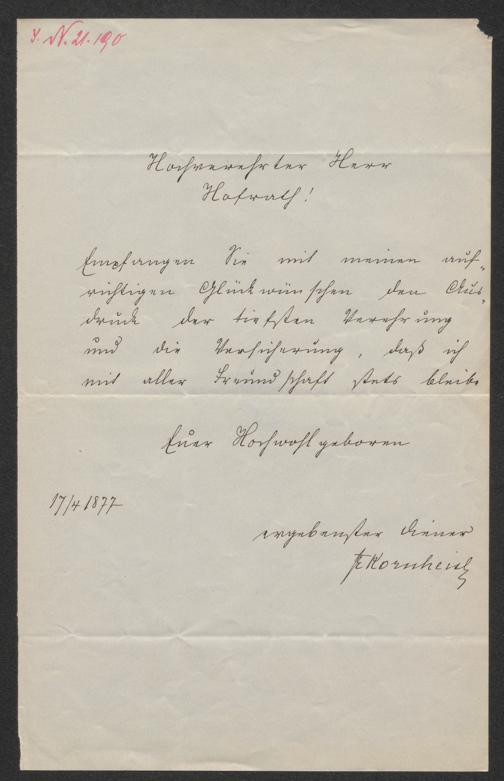 N. 21.190
Hochverehrter Herr
Hofrath!
Empfangen Sie mit meinen auf-
richtigen Glückwünschen den Aus-
druck der tiefsten Verehrung
und die Versicherung, daß ich
mit aller Freundschaft stets bleibe
Euer Hochwohlgeboren
17/4 1877
ergebenster Diener
Kornheisl